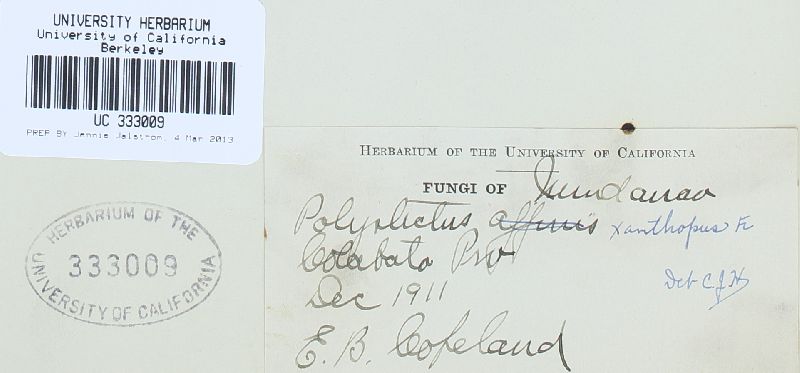 UNIVERSITY HERBARIUM
University of California
Berkeley
UC 333009
PREP BY Jennie Jalstrom, 4 Mar 2013
HERBARIUM OF THE
333009
UNIVERSITY OF CALIFORNIA
HERBARIUM OF THE UNIVERSITY OF CALIFORNIA
FUNGI OF Mindanao
Polystictus affinis xanthopus Fr
Cotabato Prov
Det C J H
Dec 1911
E. B. Copeland